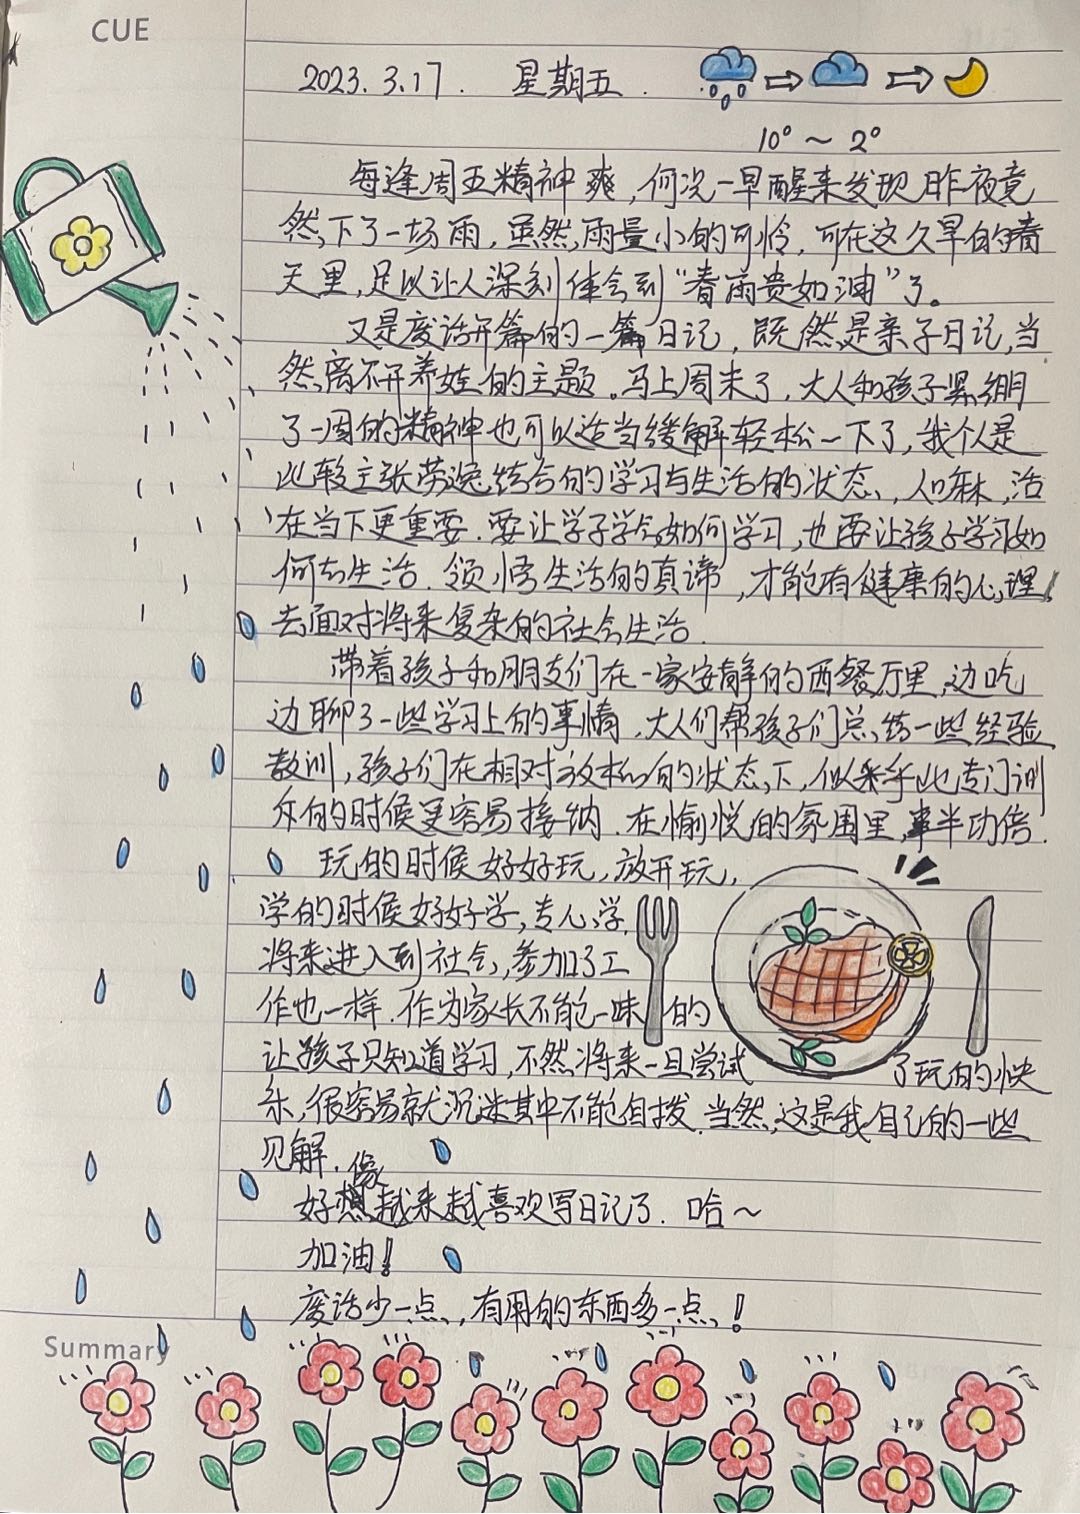 CUE
2023.3.17. 星期五.
10° ~ 2°
每逢周五精神爽,何况一早醒来发现昨夜竟
然下了一场雨,虽然雨量小的可怜,可在这久旱的春
天里,足以让人深刻体会到“春雨贵如油”了。
又是废话开篇的一篇日记,既然是亲子日记,当
然离不开养娃的主题。马上周末了,大人和孩子紧绷
了一周的精神也可以适当缓解轻松一下了,我个人是
比较主张劳逸结合的学习与生活的状态、人嘛,活
在当下更重要.要让学子学会如何学习,也要让孩子学习如
何去生活.领悟生活的真谛,才能有健康的心理,
去面对将来复杂的社会生活.
带着孩子和朋友们在一家安静的西餐厅里,边吃
边聊了一些学习上的事情,大人们帮孩子们总结一些经验
教训,孩子们在相对放松的状态下,似乎比专门训
斥的时候更容易接纳.在愉悦的氛围里,事半功倍.
玩的时候好好玩,放开玩,
学的时候好好学,专心学,
将来进入到社会,参加了工
作也一样.作为家长不能一味的
让孩子只知道学习,不然将来一旦尝试了玩的快
乐,很容易就沉迷其中不能自拨.当然,这是我自己的一些
见解.
好像越来越喜欢写日记了.哈~
加油!
废话少一点,有用的东西多一点!
Summary